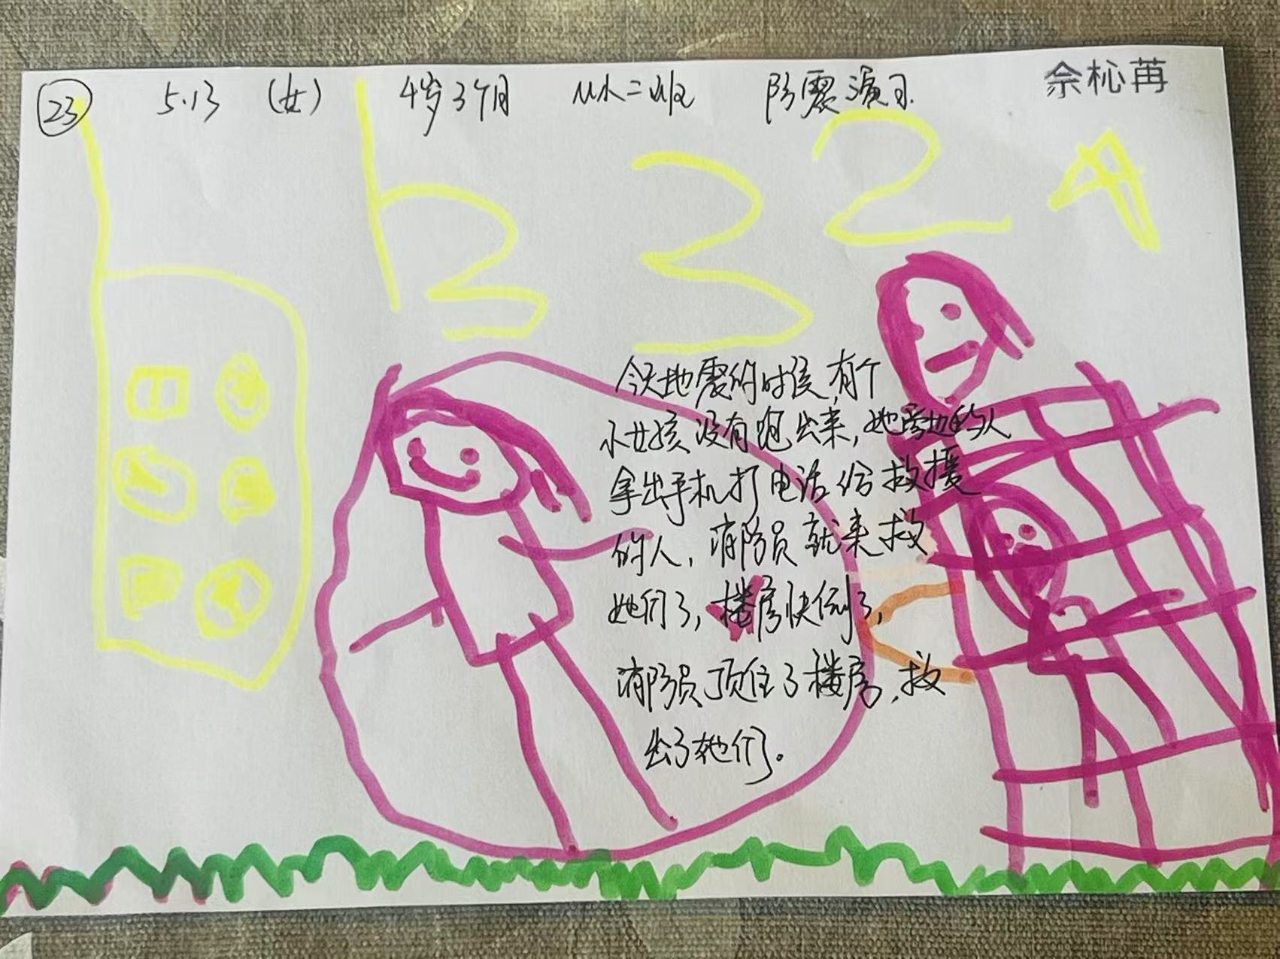 ㉓ 5.13 (女) 4岁3个月 从小二班 防震演习 佘杺苒
1 3 3 2 4
今天地震的时候,有个
小女孩没有跑出来,她旁边的人
拿出手机打电话给救援
的人,消防员就来救
她们了,楼房快倒了,
消防员顶住了楼房,救
出了她们。